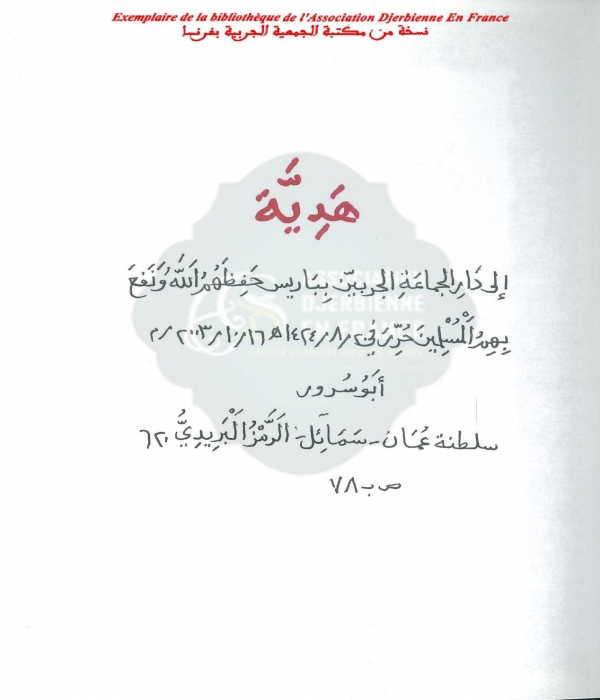 Exemplaire de la bibliothèque de l'Association Djerbienne En France
نسخة من مكتبة الجمعية الجربية بفرنسا
هَدِيَّة
إلى دَارِ الجماعَةِ الجربيّن بِبَاريس حَفِظَهُمُ اَللَّهُ وَنَفَعَ
بِهِمُ اْلْمُسْلِمِينَ حُرِّرَ في ٢/٨/١٤٢٤هـ ١٦/١٠/٢٠٠٣/م
أبَوُسُرور
سلطنة عُمَان - سَمَآئِل - اَلرَّمْزُ اَلْبَرِيدِيُّ ٦٢٠
ص ب ٧٨
ASSOCIATION
DJERBIENNE
EN FRANCE